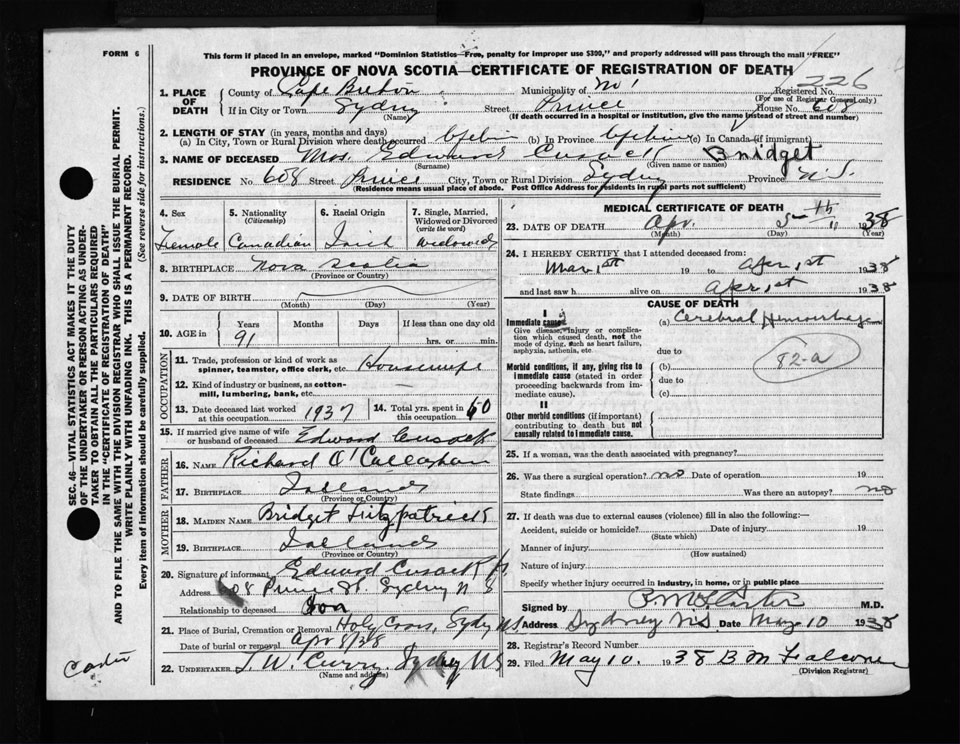 FORM 6
This form if placed in an envelope, marked "Dominion Statistics—Free, penalty for improper use $300," and properly addressed will pass through the mail "FREE"
PROVINCE OF NOVA SCOTIA—CERTIFICATE OF REGISTRATION OF DEATH
226
1. PLACE OF DEATH County of Cape Breton Municipality of No 1 Registered No.
(For use of Registrar General only)
If in City or Town Sydney Street Prince House No. 608
(Name) (If death occurred in a hospital or institution, give the name instead of street and number)
2. LENGTH OF STAY (in years, months and days)
(a) In City, Town or Rural Division where death occurred Lifetime (b) In Province Lifetime (c) In Canada (if immigrant)
3. NAME OF DECEASED Mrs. Edward Cusack Bridget
(Surname) (Given name or names)
RESIDENCE No. 608 Street Prince City, Town or Rural Division Sydney Province N.S.
(Residence means usual place of abode. Post Office Address for residents in rural parts not sufficient)
4. Sex 5. Nationality (Citizenship) 6. Racial Origin 7. Single, Married, Widowed or Divorced (write the word)
Female Canadian Irish widowed
8. BIRTHPLACE Nova Scotia
(Province or Country)
9. DATE OF BIRTH
(Month) (Day) (Year)
10. AGE in Years Months Days If less than one day
91 hrs. or min.
OCCUPATION
11. Trade, profession or kind of work as spinner, teamster, office clerk, etc. Housewife
12. Kind of industry or business, as cotton-mill, lumbering, bank, etc.
13. Date deceased last worked at this occupation 1937 14. Total yrs. spent in this occupation 60
15. If married give name of wife or husband of deceased Edward Cusack
FATHER
16. NAME Richard O'Callaghan
17. BIRTHPLACE Ireland
(Province or Country)
MOTHER
18. MAIDEN NAME Bridget Fitzpatrick
19. BIRTHPLACE Ireland
(Province or Country)
20. Signature of informant Edward Cusack Jr
Address 608 Prince St. Sydney N S
Relationship to deceased Son
21. Place of Burial, Cremation or Removal Holy Cross, Sydney N.S
Date of burial or removal Apr 8/38
22. UNDERTAKER T. W. Curry. Sydney N S
(Name and address)
MEDICAL CERTIFICATE OF DEATH
23. DATE OF DEATH Apr. 5th 1938
(Month) (Day) (Year)
24. I HEREBY CERTIFY that I attended deceased from:
Mar 1st 19 to Apr 1st 1938
and last saw h alive on Apr 1st 1938
CAUSE OF DEATH
I
Immediate cause (a) Cerebral Hemorrhage
Give disease, injury or complication which caused death, not the mode of dying, such as heart failure, asphyxia, asthenia, etc.
due to
82-a
Morbid conditions, if any, giving rise to immediate cause (stated in order proceeding backwards from immediate cause).
(b)
due to
(c)
II
Other morbid conditions (if important) contributing to death but not causally related to immediate cause.
25. If a woman, was the death associated with pregnancy?
26. Was there a surgical operation? no Date of operation 19
State findings Was there an autopsy? no
27. If death was due to external causes (violence) fill in also the following:—
Accident, suicide or homicide? Date of injury 19
(State which)
Manner of injury
(How sustained)
Nature of injury
Specify whether injury occurred in industry, in home, or in public place
Signed by M.D.
Address Sydney N.S Date May 10 1938
28. Registrar's Record Number
29. Filed May 10. 1938 B M Falconer
(Division Registrar)
SEC. 46—VITAL STATISTICS ACT MAKES IT THE DUTY OF THE UNDERTAKER OR PERSON ACTING AS UNDERTAKER TO OBTAIN ALL THE PARTICULARS REQUIRED IN THE "CERTIFICATE OF REGISTRATION OF DEATH" AND TO FILE THE SAME WITH THE DIVISION REGISTRAR WHO SHALL ISSUE THE BURIAL PERMIT.
WRITE PLAINLY WITH UNFADING INK. THIS IS A PERMANENT RECORD.
Every item of information should be carefully supplied. (See reverse side for instructions.)